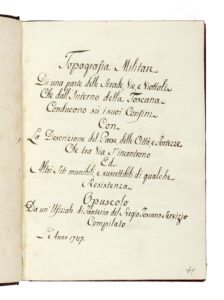 Topografia Militare
Di una parte delle Strade, Vie e Viottole
Che dall'Interno della Toscana
Conducono su i suoi Confini
Con
La Descrizione del Paese delle Città, e Fortezze
Che tra Via s'incontrano
Ed
Altri Siti munibili, e suscettibili di qualche
Resistenza
Opuscolo
Da un Ufiziale di Fanteria del Regio Toscano Servizio
Compilato
L'Anno 1747.